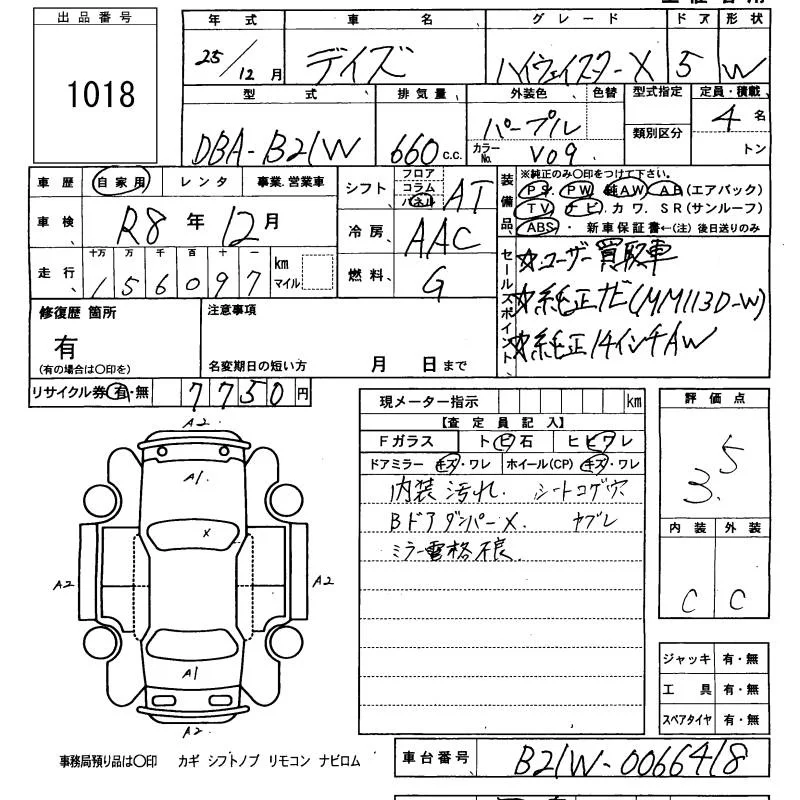 出品番号
1018
年式 車名 グレード ドア 形状
25/12月 デイズ ハイウェイスターX 5 W
型式 排気量 外装色 色替 型式指定 定員・積載
DBA-B21W 660 c.c. パープル 類別区分 4名
カラーNo. V09 トン
車歴 自家用 レンタ 事業.営業車
車検 R8年12月
走行 十万 万 千 百 十 一
156097 km マイル
シフト フロア コラム パネル AT
冷房 AAC
燃料 G
装備品 ※純正のみ〇印をつけて下さい。
PS PW 純AW AB(エアバック)
TV ナビ.カワ.SR(サンルーフ)
ABS・新車保証書←(注)後日送りのみ
セールスポイント
☆ユーザー買取車
☆純正ナビ(MM113D-W)
☆純正14インチAW
修復歴 箇所
有
(有の場合は〇印を)
注意事項
名変期日の短い方 月 日まで
リサイクル券 有・無 7750円
現メーター指示 km
【査定員記入】
Fガラス トビ石 ヒビワレ
ドアミラー キズ・ワレ ホイール(CP) キズ・ワレ
内装汚れ. シートコゲ穴
Bドアダンパー×. ヤブレ
ミラー電格不良.
評価点
3.5
内装 外装
C C
A2
A1
X
A2 A2
A1
A2
ジャッキ 有・無
工具 有・無
スペアタイヤ 有・無
事務局預り品は〇印 カギ シフトノブ リモコン ナビロム
車台番号 B21W-0066418